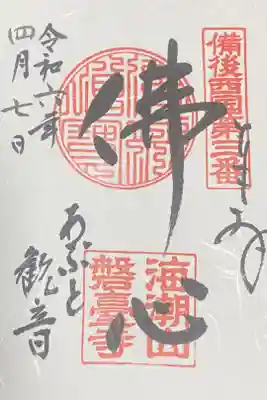 備後西国第三番
佛心
海潮山
磐臺寺
令和六年
四月七日
あぶと
観音